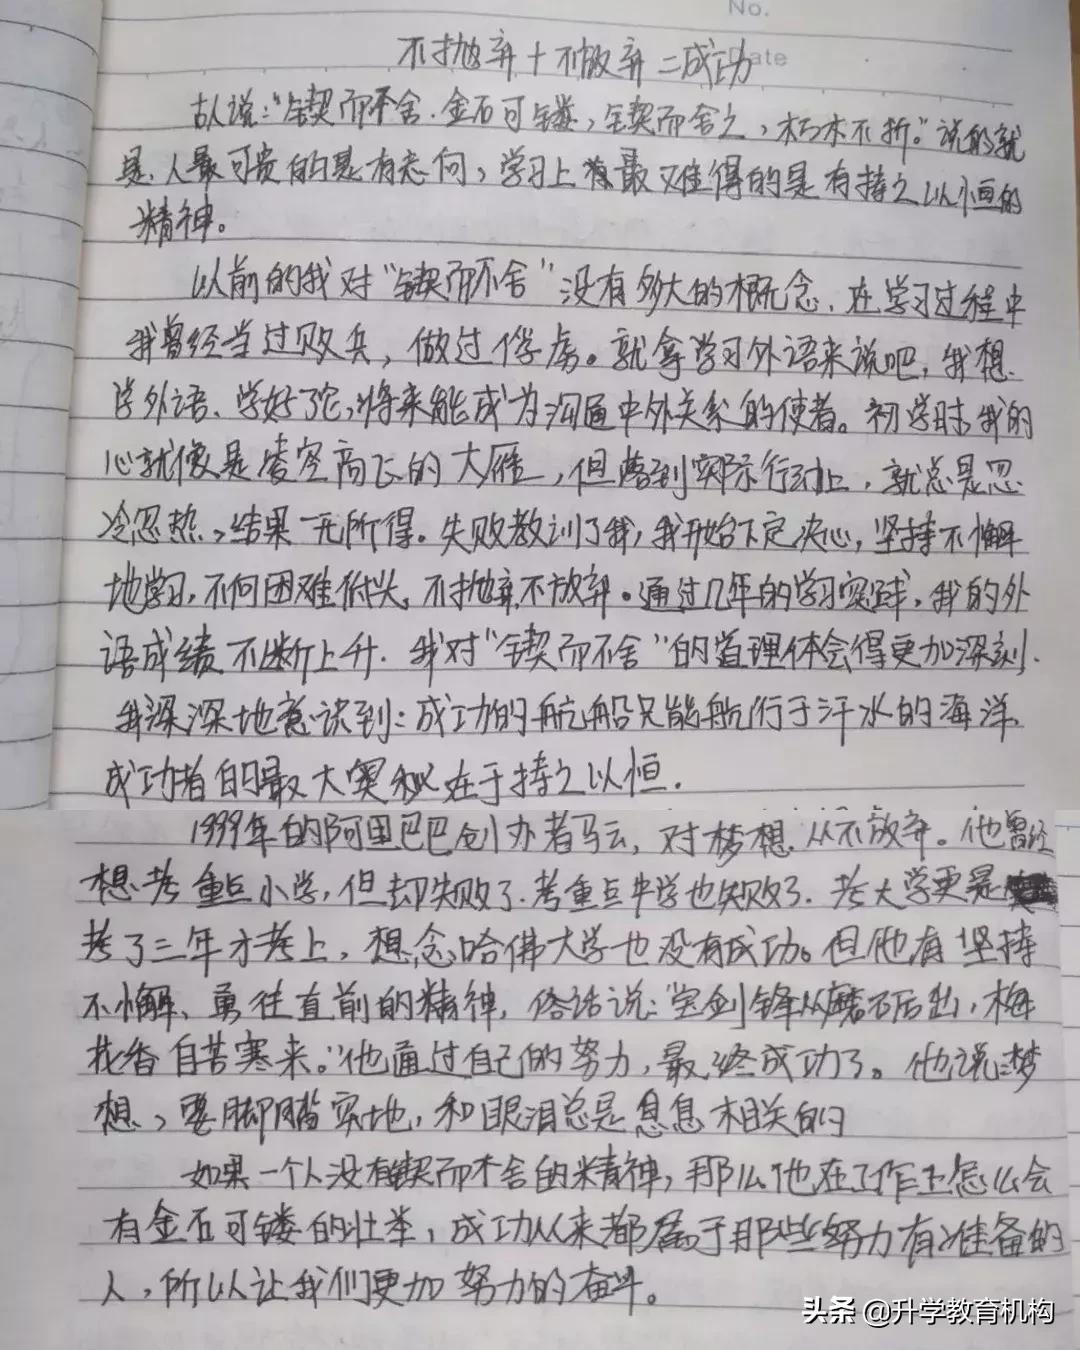 No.
Date
不抛弃+不放弃=成功
古人说:"锲而不舍.金石可镂,锲而舍之,朽木不折。"说的就
是.人最可贵的是有志向,学习上最难得的是有持之以恒的
精神。
以前的我对"锲而不舍"没有多大的概念.在学习过程中
我曾经当过败兵,做过俘虏。就拿学习外语来说吧,我想
学外语、学好了它,将来能成为沟通中外关系的使者。初学时,我的
心就像是凌空高飞的大雁,但落到实际行动上,就总是忽
冷忽热,结果一无所得。失败教训了我,我开始下定决心,坚持不懈
地学习,不向困难低头,不抛弃不放弃。通过几年的学习实践,我的外
语成绩不断上升.我对"锲而不舍"的道理体会得更加深刻.
我深深地意识到:成功的航船只能航行于汗水的海洋,
成功者的最大奥秘在于持之以恒.
1999年的阿里巴巴创办者马云,对梦想.从不放弃。他曾经
想考重点小学,但却失败了.考重点中学也失败了.考大学更是
考了三年才考上,想念哈佛大学也没有成功。但他有坚持
不懈、勇往直前的精神,俗话说:"宝剑锋从磨石后出,梅
花香自苦寒来。"他通过自己的努力,最终成功了。他说:梦
想,要脚踏实地,和眼泪总是息息相关的
如果一个人没有锲而不舍的精神,那么他在工作上怎么会
有金石可镂的壮举,成功从来都属于那些努力有准备的
人,所以让我们更加努力的奋斗。
头条 @升学教育机构